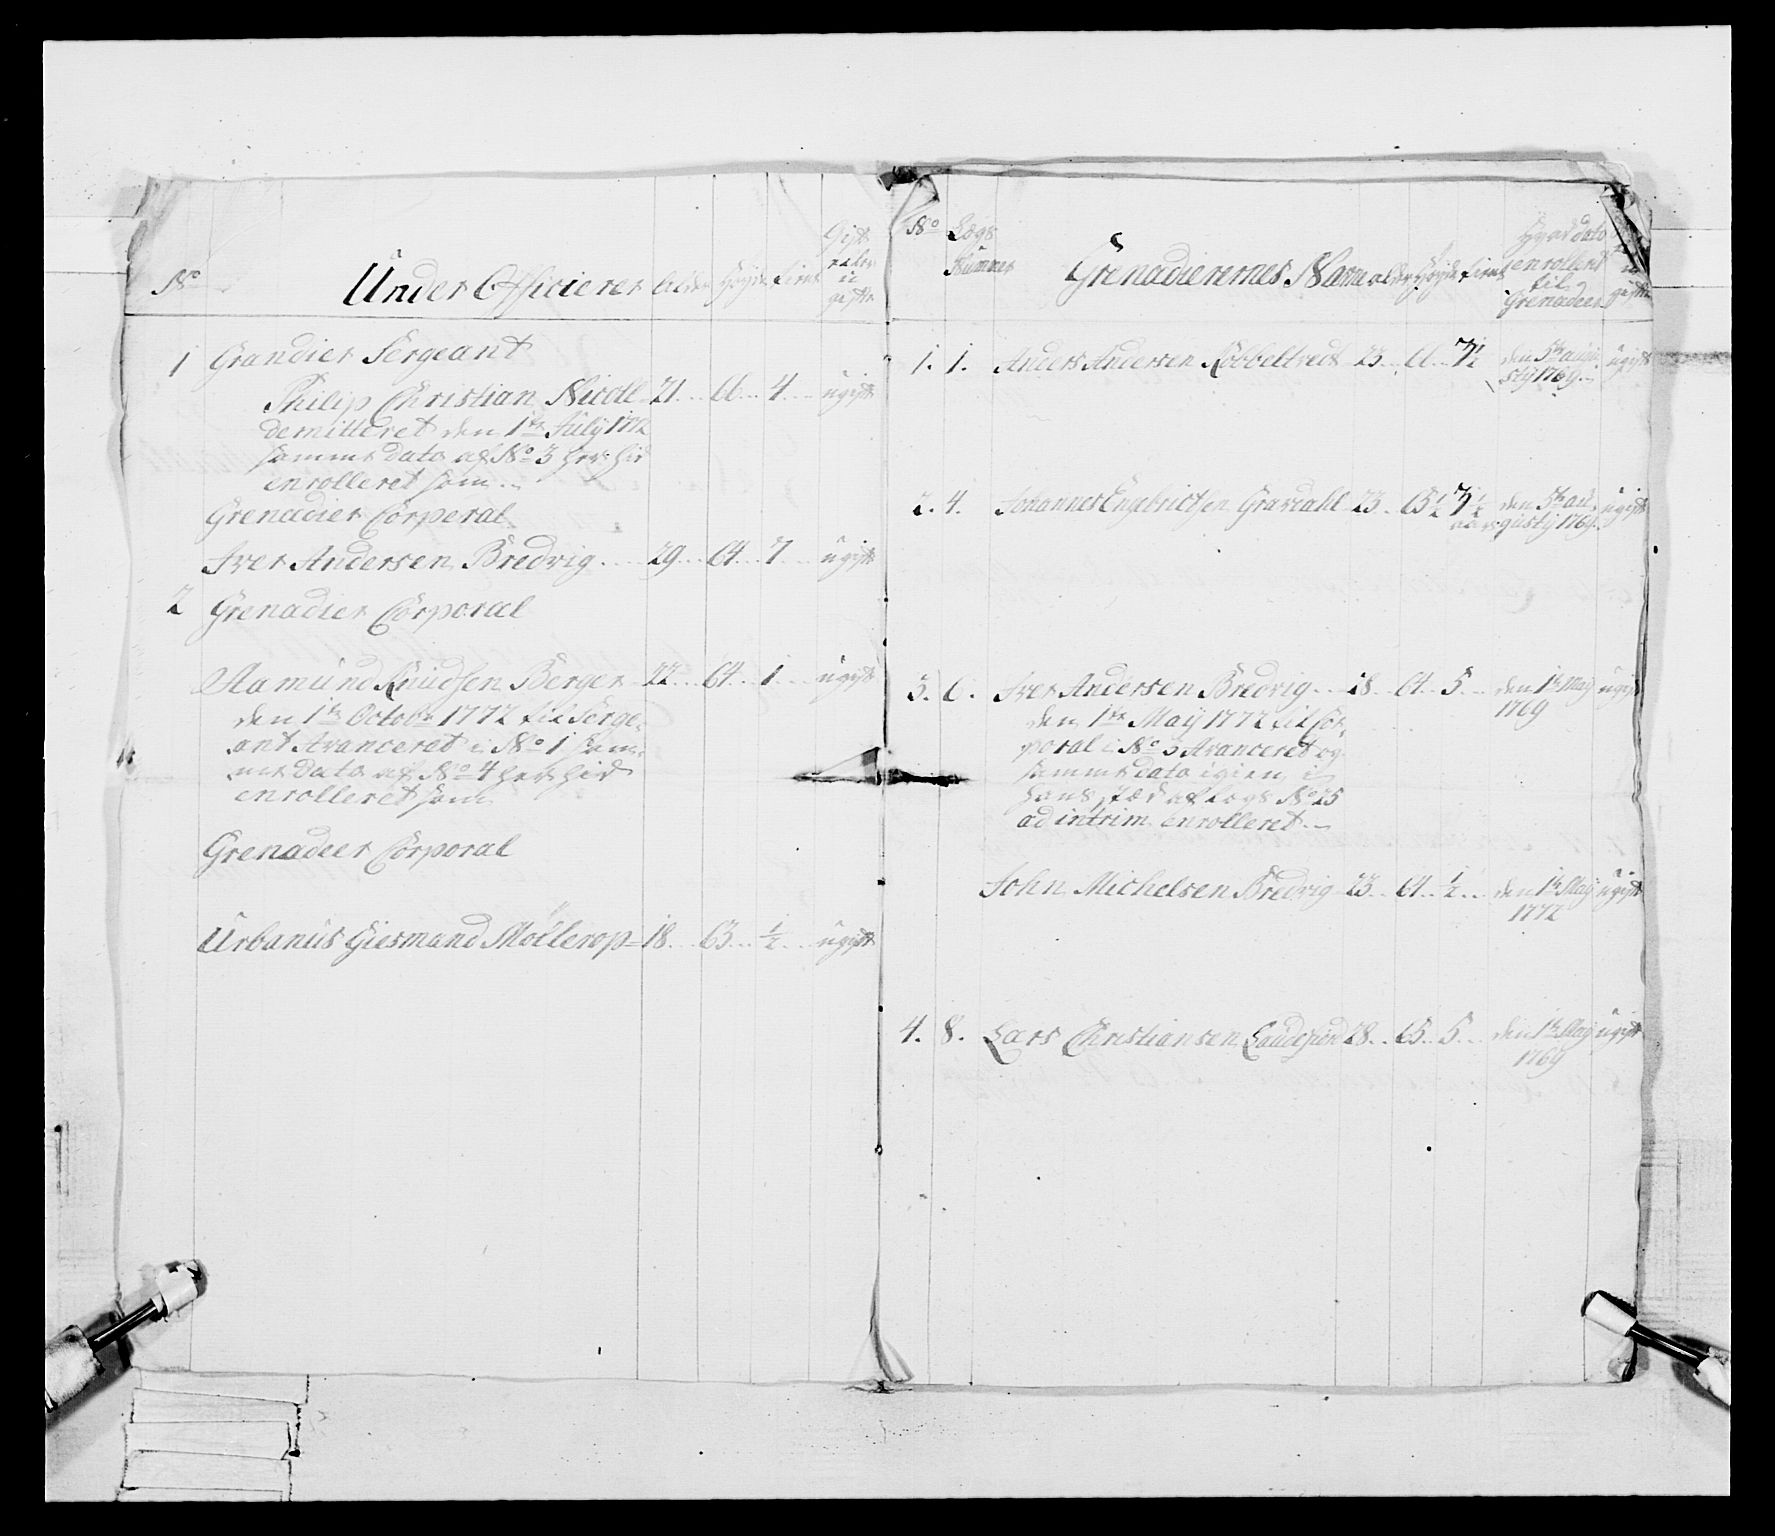 No
Under Officierer
Alder
Høyde
tient
Gift
eller
u
gifte
1 Grandier Sergeant
Philip Christian Nicoll 21 66 4 ugift
demitteret den 1te July 1772
samme dato af No 3 her hid
enrolleret som
Grenadier Corperal
Iver Andersen Bredvig 29 64 7 ugift
2 Grenadier Corporal
Aamund Knudsen Berger 22 64 1 ugift
den 1te Octobr 1772 til Serge-
ant Avanceret i No 1 sam-
me Dato af No 4 her hid
enrolleret som
Grenadeer Corporal
Urbanus Giesmand Möllerop 18 63 1/2 ugift
No
Lægs
Nummer
Grenadierernes Namn
alder
Høyde
tient
Hvad dato
enrollert
til
Grenadeer
gifte
1. 1. Anders Andersen Röbbeltredt 23 66 3 1/2 den 5te augu- ugift
stÿ 1769
2. 4. Johannes Engebrictsen Gravdahl 23 65 1/2 3 1/2 den 5te au- ugift
aar gustÿ 1769
3. 6. Iver Andersen Bredvig 28 64 5 den 1te May ugift
1769
den 1te May 1772 til Cor-
poral i No 3 Avanceret og
samme dato igien i
hans stæd af Legs No 25
ad intrim enrolleret
John Michelsen Bredvig 23 64 1/2 den 1te May ugift
1772
4. 8. Lars Christiansen 28 65 5 den 1te May ugift
1769